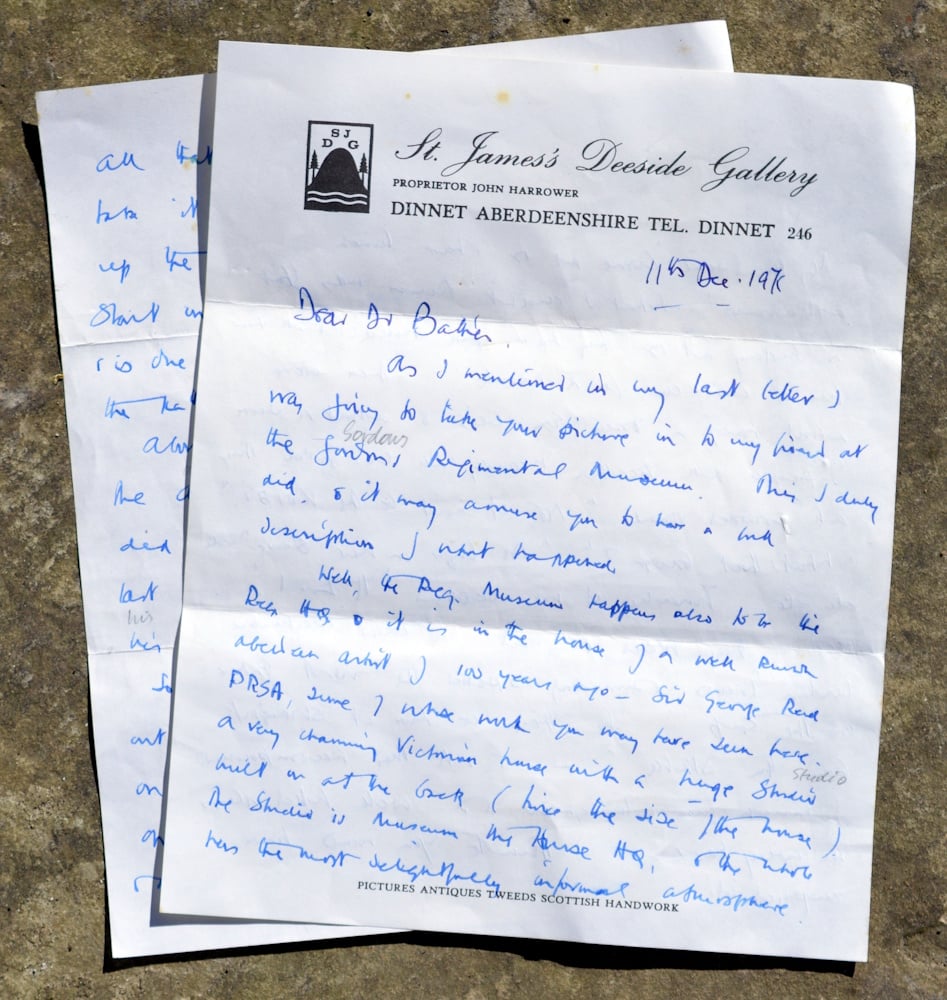 SJ
D G
St. James's Deeside Gallery
PROPRIETOR JOHN HARROWER
DINNET ABERDEENSHIRE TEL. DINNET 246
11th Dec. 197
Dear Dr
As I mentioned in my last letter I
was going to take your picture in to my friend at
Gordons
the Gordons Regimental Museum. This I duly
did, & it may amuse you to hear a
description of what happened.
Well, the Reg. Museum happens also to be the
Reg. HQ & it is in the house of a well known
aberdeen artist of 100 years ago – Sir George Reid
PRSA, some of whose work you may have seen here.
a very charming Victorian house with a huge Studio
studio
built on at the back (twice the size of the house).
The Studio is Museum the House HQ, & the whole
has the most delightfully informal atmosphere.
PICTURES ANTIQUES TWEEDS SCOTTISH HANDWORK
all that
take it
up the
Start
is due
the
the
did
last
his
his
So
out
on
on